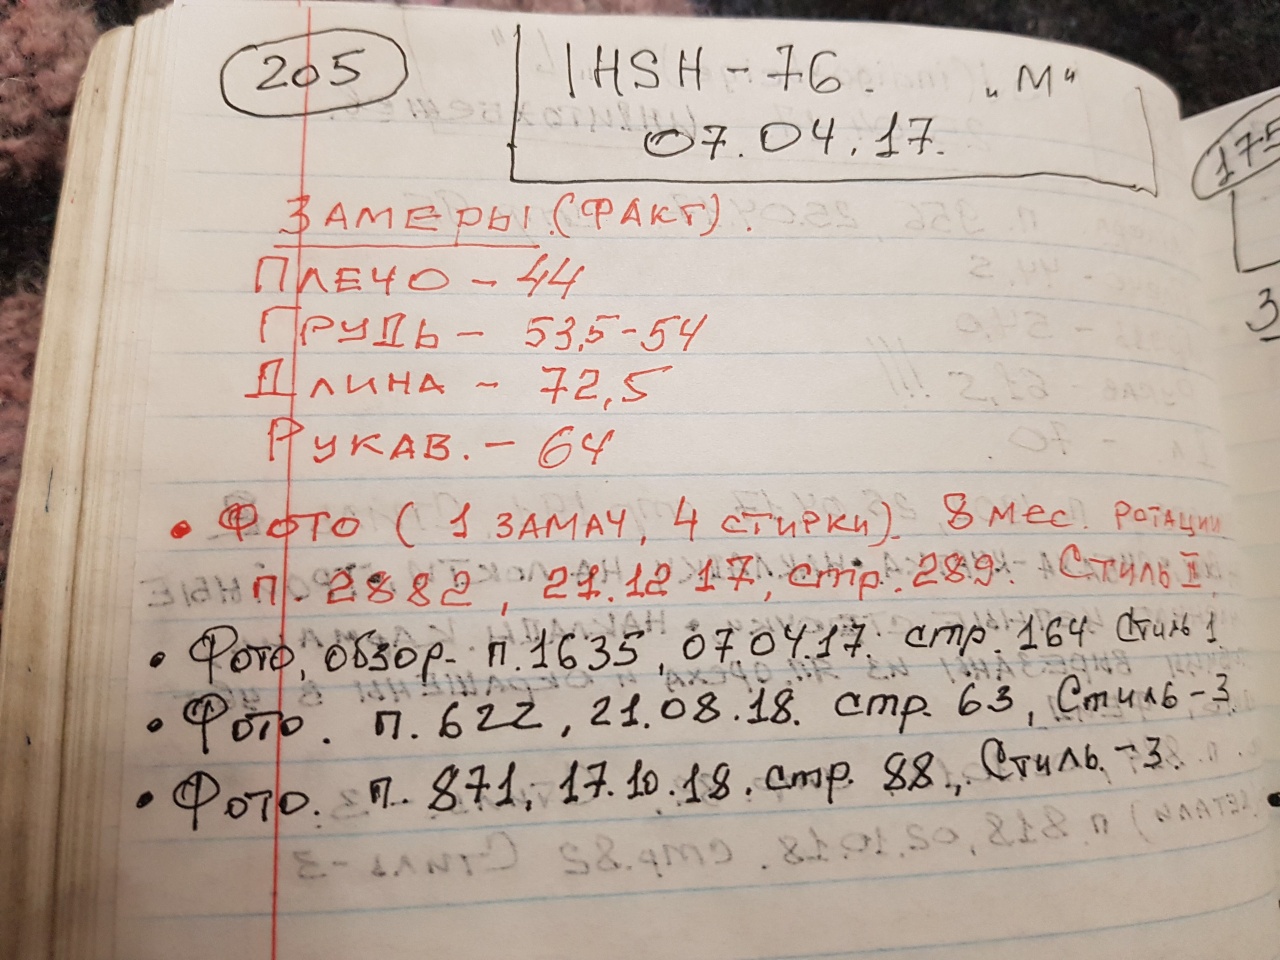 205
IHSH-76. „М“
07.04.17.
ЗАМЕРЫ. (ФАКТ).
ПЛЕЧО - 44
ГРУДЬ - 53,5-54
ДЛИНА - 72,5
РУКАВ. - 64
• ФОТО (1 ЗАМАЧ, 4 СТИРКИ). 8 мес. РОТАЦИИ
п. 2882, 21.12.17, стр. 289. Стиль II.
• Фото, обзор- п.1635, 07.04.17. стр. 164 Стиль 1
• Фото. п. 622, 21.08.18. стр. 63, Стиль-3.
• Фото. п. 871, 17.10.18. стр. 88., Стиль.-3.
175
З